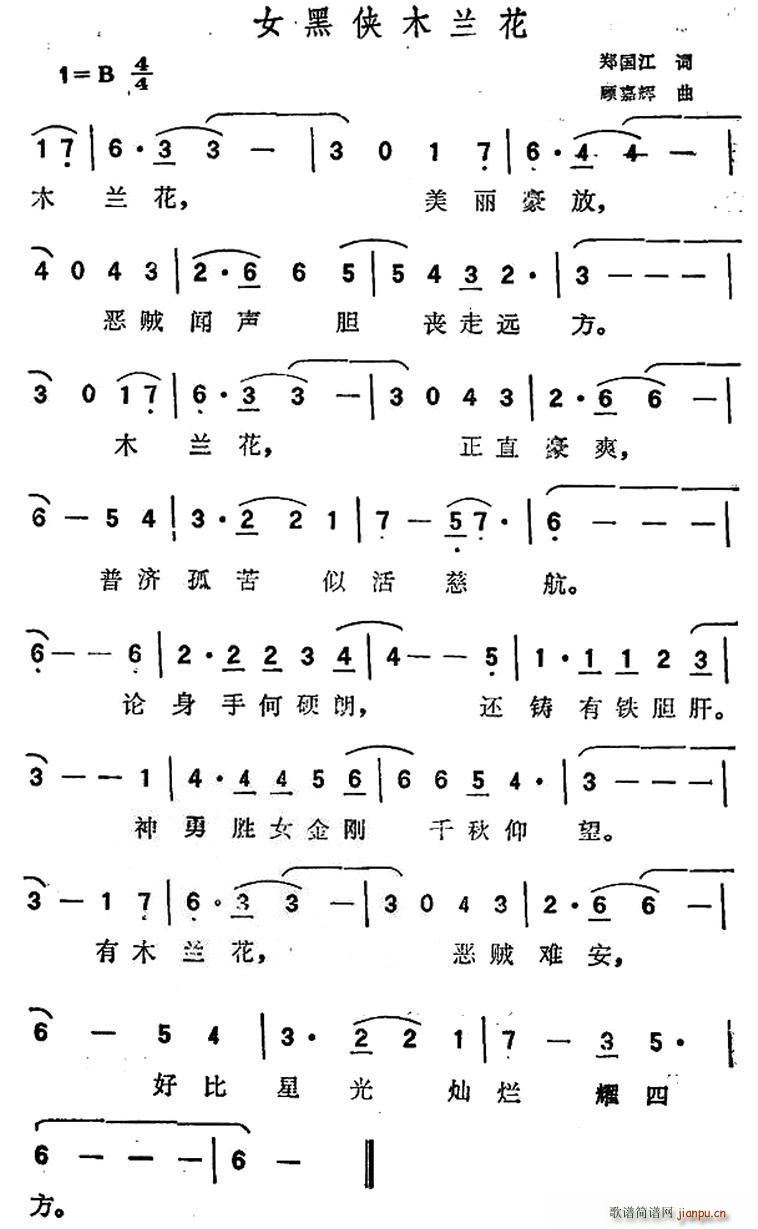 女黑侠木兰花
1=B 4/4
郑国江 词
顾嘉辉 曲
1 7 | 6 · 3 3 — | 3 0 1 7 | 6 · 4 4 — |
木兰花， 美丽豪放，
4 0 4 3 | 2 · 6 6 5 | 5 4 3 2 · | 3 — — — |
恶贼闻声胆丧走远方。
3 0 1 7 | 6 · 3 3 — | 3 0 4 3 | 2 · 6 6 — |
木兰花， 正直豪爽，
6 — 5 4 | 3 · 2 2 1 | 7 — 5 7 · | 6 — — — |
普济孤苦似活慈航。
6 — — 6 | 2 · 2 2 3 4 | 4 — — 5 | 1 · 1 1 2 3 |
论身手何硕朗， 还铸有铁胆肝。
3 — — 1 | 4 · 4 4 5 6 | 6 6 5 4 · | 3 — — — |
神勇胜女金刚千秋仰望。
3 — 1 7 | 6 · 3 3 — | 3 0 4 3 | 2 · 6 6 — |
有木兰花， 恶贼难安，
6 — 5 4 | 3 · 2 2 1 | 7 — 3 5 · |
好比星光灿烂耀四
6 — — — | 6 — ‖
方。
歌谱简谱网
jianpu.cn